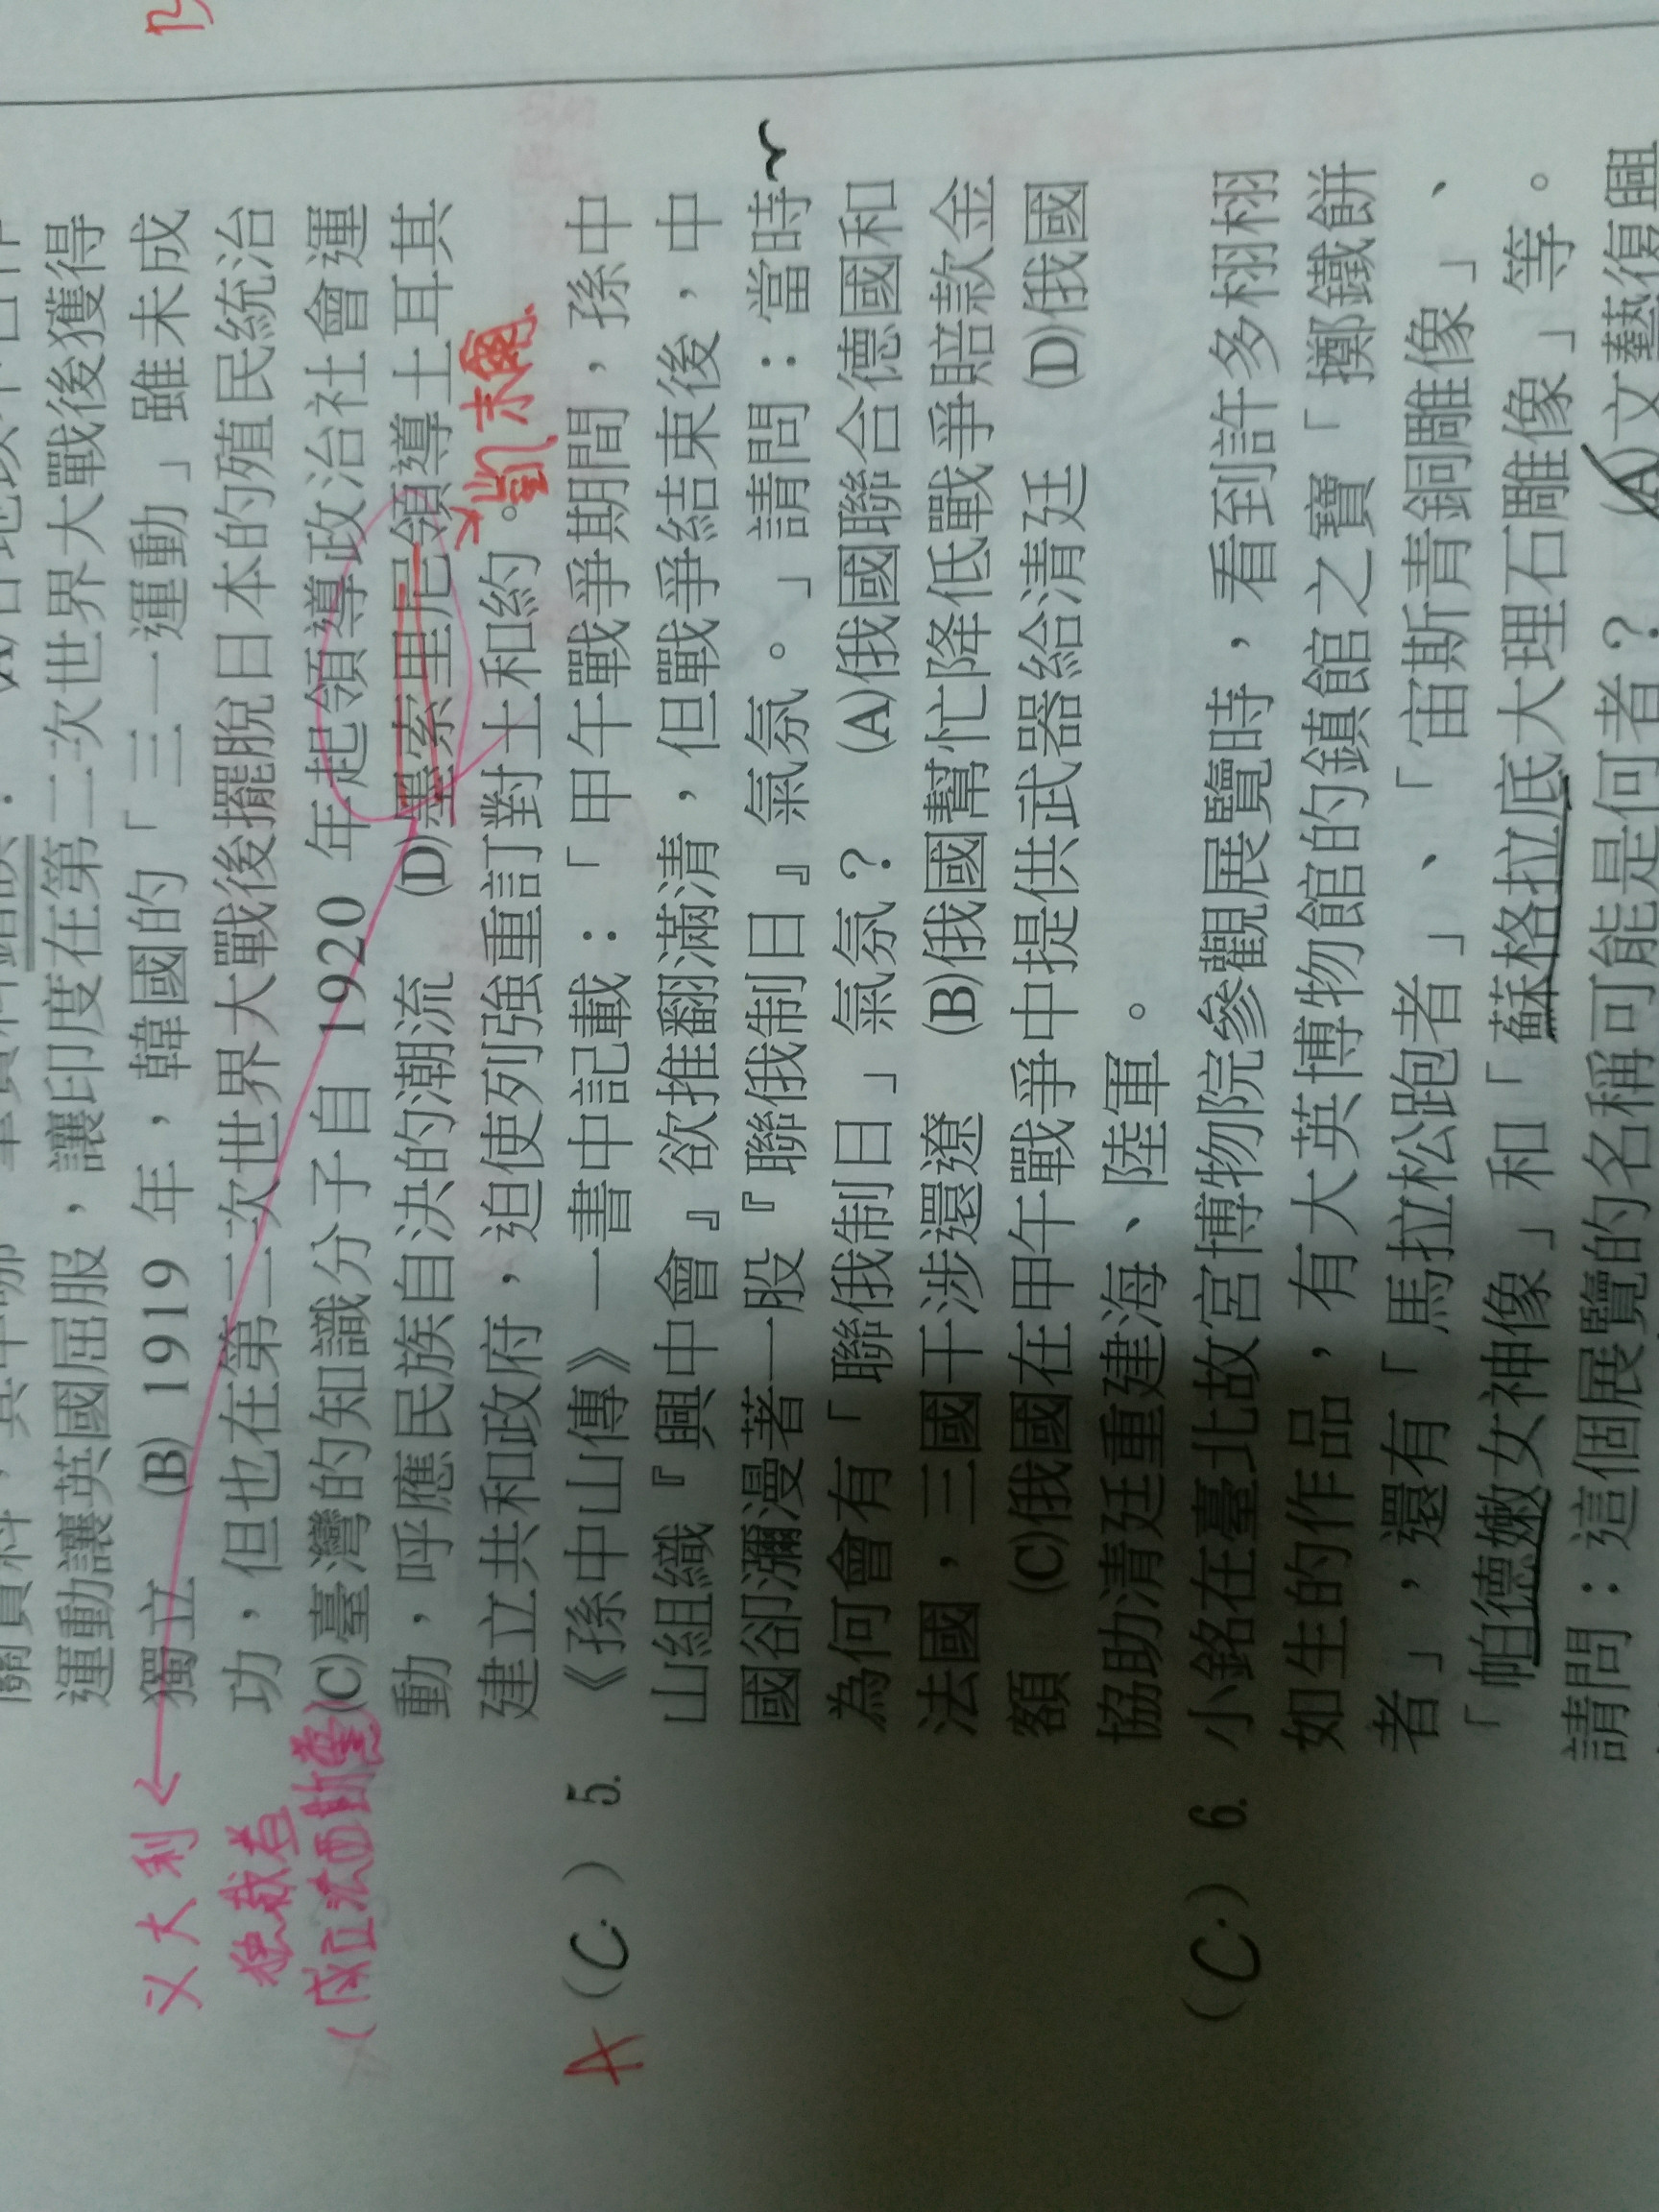 運動讓英國屈服，讓印度在第二次世界大戰後獲得
獨立　(B) 1919 年，韓國的「三一運動」雖未成
功，但也在第二次世界大戰後擺脫日本的殖民統治
(C)臺灣的知識分子自 1920 年起領導政治社會運
動，呼應民族自決的潮流　(D)墨索里尼領導土耳其
建立共和政府，迫使列強重訂對土和約。
凱末爾
义大利
独裁者
(C) 5. 《孫中山傳》一書中記載：「甲午戰爭期間，孫中
A
山組織『興中會』欲推翻滿清，但戰爭結束後，中
國卻瀰漫著一股『聯俄制日』氣氛。」請問：當時
為何會有「聯俄制日」氣氛？　(A)俄國聯合德國和
法國，三國干涉還遼　(B)俄國幫忙降低戰爭賠款金
額　(C)俄國在甲午戰爭中提供武器給清廷　(D)俄國
協助清廷重建海、陸軍。
(C) 6. 小銘在臺北故宮博物院參觀展覽時，看到許多栩栩
如生的作品，有大英博物館的鎮館之寶「擲鐵餅
者」，還有「馬拉松跑者」、「宙斯青銅雕像」、
「帕德嫩女神像」和「蘇格拉底大理石雕像」等。
請問：這個展覽的名稱可能是何者？　(A)文藝復興